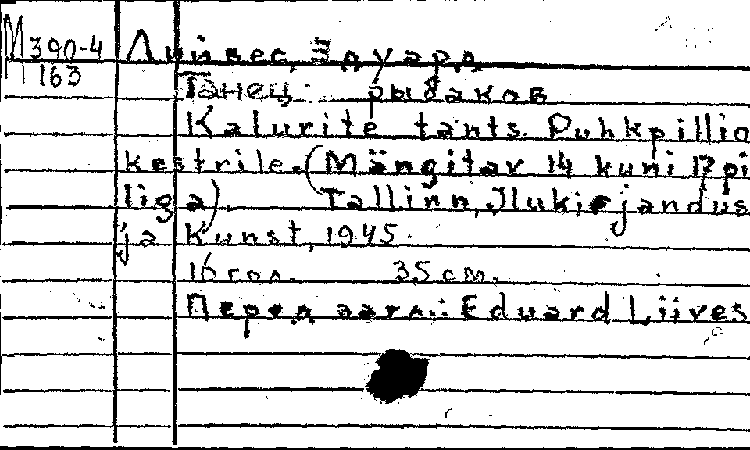 М 390-4
163
Лийвес, Эдуард
Танец рыбаков
Kalurite tants. Puhkpillio
kestrile. (Mängitav 14 kuni 17 pi
liga). Tallinn, Ilukirjandus
ja Kunst, 1945.
16 гол. 35 см.
Перед загл.: Eduard Liives